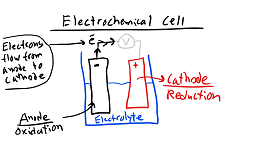 Electrochemical Cell
Electrons
flow from
anode to
cathode
e-
V
-
+
Cathode
Reduction
Anode
Oxidation
Electrolyte